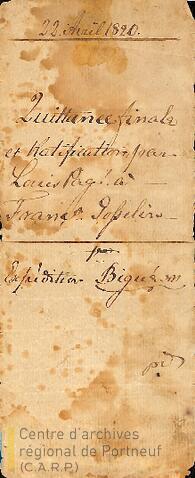 22 Avril 1820.
Quittance finale
et Ratification par
Louis Pagé à
Franç. Josselin
pour
Expédition Bigué
Centre d'archives
régional de Portneuf
(C.A.R.P.)